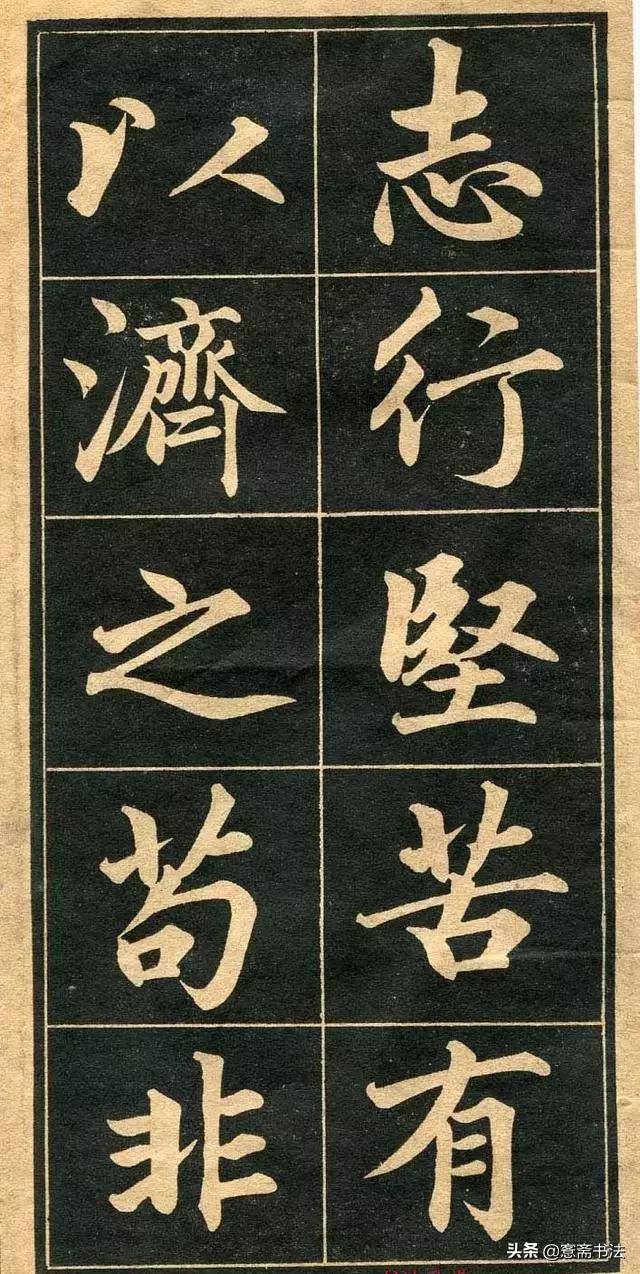 志行堅苦有
以濟之苟非
头条 @惷斋书法